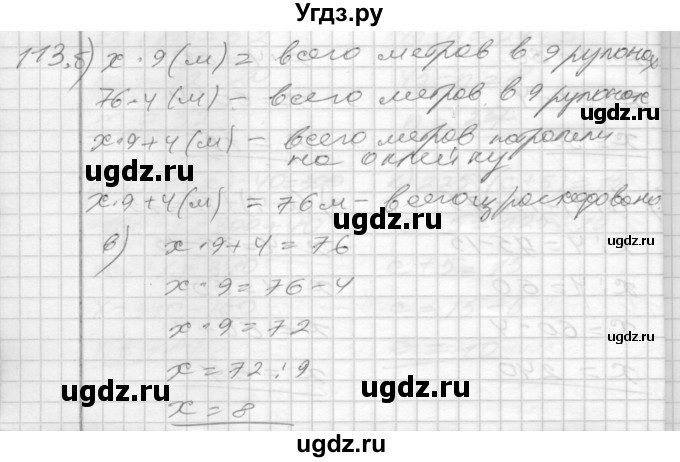 Угдз.ру
113, б) x · 9 (м) = всего метров в 9 рулонах
76 - 4 (м) - всего метров в 9 рулонах
x · 9 + 4 (м) - всего метров потратили
на оклейку
x · 9 + 4 (м) = 76 м - всего израсходовано
в) x · 9 + 4 = 76
x · 9 = 76 - 4
x · 9 = 72
x = 72 : 9
x = 8
ugdz.ru
ugdz.ru
ugdz.ru
ugdz.ru
ugdz.ru
ugdz.ru
ugdz.ru
ugdz.ru
ugdz.ru